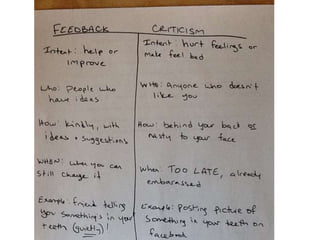 FEEDBACK
Intent: help or
improve
Who: people who
have ideas
How: kindly, with
ideas + suggestions
WHEN: when you can
still change it
Example: friend telling
you something's in your
teeth (quietly)!
CRITICISM
Intent: hurt feelings or
make feel bad
WHO: Anyone who doesn't
like you
How: behind your back or
nasty to your face
When: TOO LATE, already
embarrassed
Example: Posting picture of
something in your teeth on
facebook